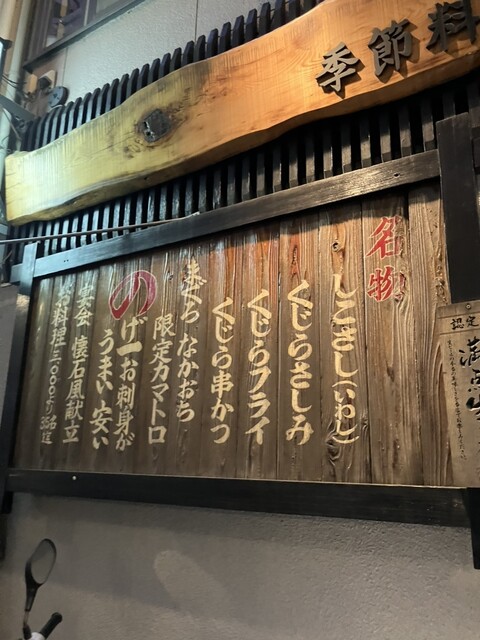 季節料
名物
しこさし(いわし)
くじらさしみ
くじらフライ
くじら串かつ
まぐろ なかおち
限定カマトロ
のげ一お刺身が
うまい安い
宴会 懐石風献立
お料理三〇〇〇より35名迄
認定